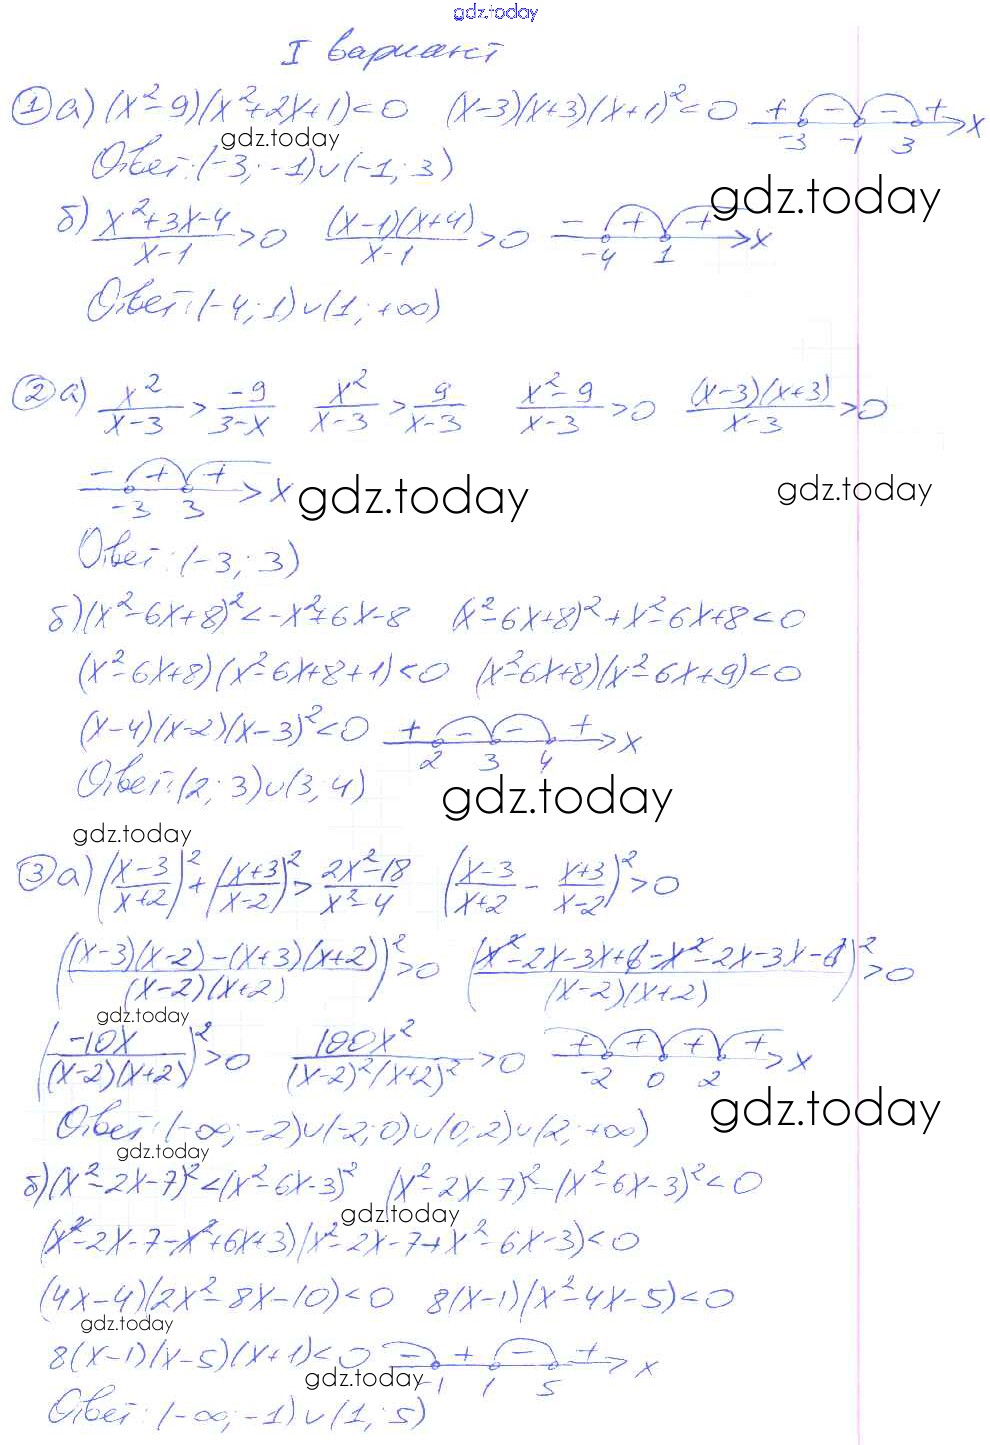 gdz.today
I вариант
① а) (x²-9)(x²+2x+1)<0 (x-3)(x+3)(x+1)²<0 + - - + -3 -1 3 x
gdz.today
Ответ: (-3; -1)∪(-1; 3)
gdz.today
б) (x²+3x-4)/(x-1)>0 ((x-1)(x+4))/(x-1)>0 - + + -4 1 x
Ответ: (-4; 1)∪(1; +∞)
② а) x²/(x-3) > -9/(3-x) x²/(x-3) > 9/(x-3) (x²-9)/(x-3)>0 ((x-3)(x+3))/(x-3)>0
- + + -3 3 x
gdz.today gdz.today
Ответ: (-3; 3)
б) (x²-6x+8)²<-x²+6x-8 (x²-6x+8)²+x²-6x+8<0
(x²-6x+8)(x²-6x+8+1)<0 (x²-6x+8)(x²-6x+9)<0
(x-4)(x-2)(x-3)²<0 + - - + 2 3 4 x
Ответ: (2; 3)∪(3; 4)
gdz.today
gdz.today
③ а) ((x-3)/(x+2))²+((x+3)/(x-2))²>(2x²-18)/(x²-4) ((x-3)/(x+2)-(x+3)/(x-2))²>0
(((x-3)(x-2)-(x+3)(x+2))/((x-2)(x+2)))²>0 ((x²-2x-3x+6-x²-2x-3x-6)/((x-2)(x+2)))²>0
gdz.today
(-10x/((x-2)(x+2)))²>0 100x²/((x-2)²(x+2)²)>0 + + + + -2 0 2 x
gdz.today
Ответ: (-∞; -2)∪(-2; 0)∪(0; 2)∪(2; +∞)
gdz.today
б) (x²-2x-7)²<(x²-6x-3)² (x²-2x-7)²-(x²-6x-3)²<0
gdz.today
(x²-2x-7-x²+6x+3)(x²-2x-7+x²-6x-3)<0
(4x-4)(2x²-8x-10)<0 8(x-1)(x²-4x-5)<0
gdz.today
8(x-1)(x-5)(x+1)<0 - + - + -1 1 5 x
gdz.today
Ответ: (-∞; -1)∪(1; 5)